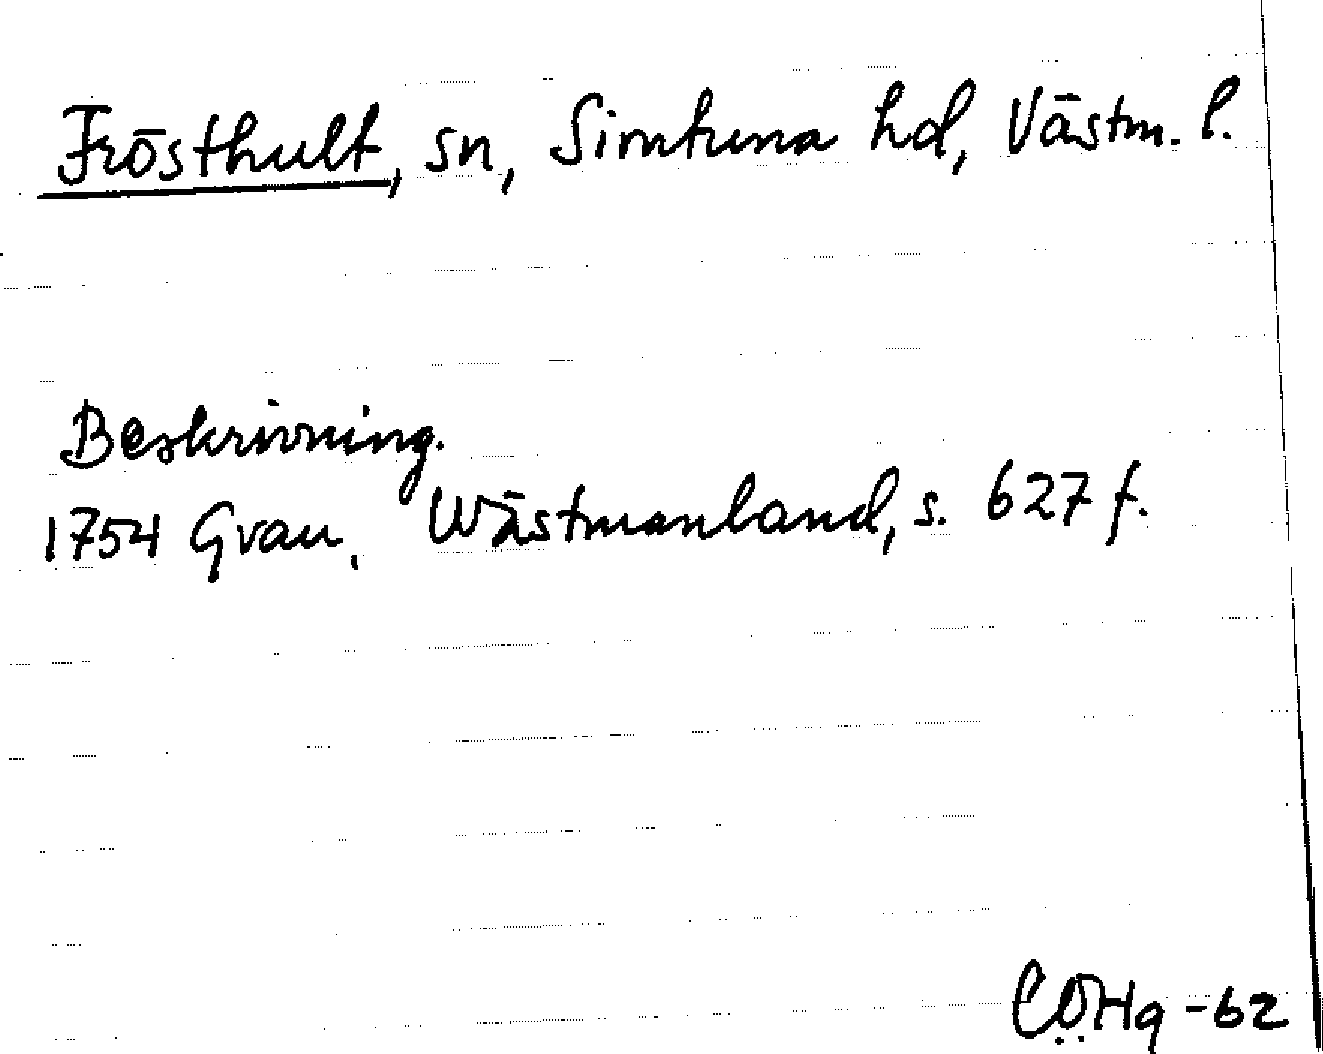 Frösthult, sn, Simtuna hd, Västm. l.
Beskrivning.
1754 Grau, Wästmanland, s. 627 f.
-62